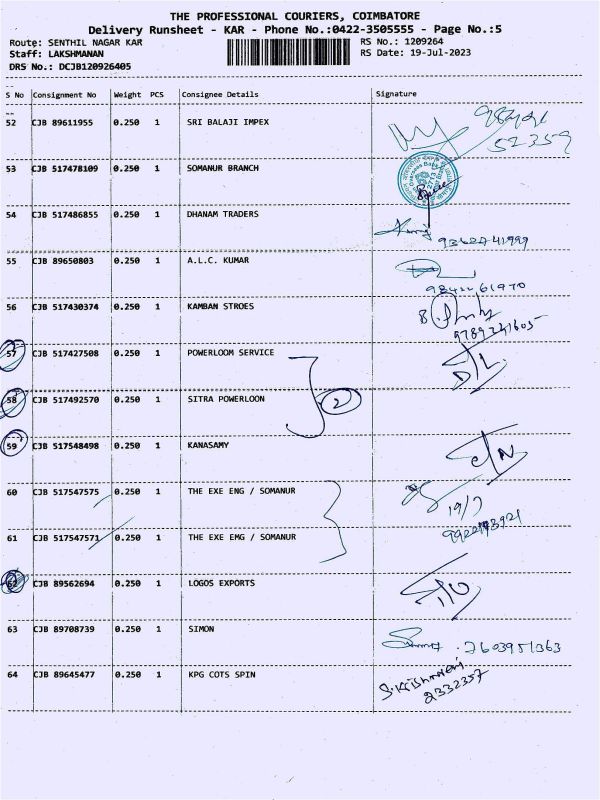 THE PROFESSIONAL COURIERS, COIMBATORE
Delivery Runsheet - KAR - Phone No.:0422-3505555 - Page No.:5
Route: SENTHIL NAGAR KAR RS No.: 1209264
Staff: LAKSHMANAN RS Date: 19-Jul-2023
DRS No.: DCJB120926405
S No Consignment No Weight PCS Consignee Details Signature
52 CJB 89611955 0.250 1 SRI BALAJI IMPEX
52359
53 CJB 517478109 0.250 1 SOMANUR BRANCH
54 CJB 517486855 0.250 1 DHANAM TRADERS
9362741999
55 CJB 89650803 0.250 1 A.L.C. KUMAR
56 CJB 517430374 0.250 1 KAMBAN STROES
57 CJB 517427508 0.250 1 POWERLOOM SERVICE
D/L
58 CJB 517492570 0.250 1 SITRA POWERLOON 2
59 CJB 517548498 0.250 1 KANASAMY
60 CJB 517547575 0.250 1 THE EXE ENG / SOMANUR
19/7
61 CJB 517547571 0.250 1 THE EXE EMG / SOMANUR
62 CJB 89562694 0.250 1 LOGOS EXPORTS
63 CJB 89708739 0.250 1 SIMON
7603951363
64 CJB 89645477 0.250 1 KPG COTS SPIN
2332357